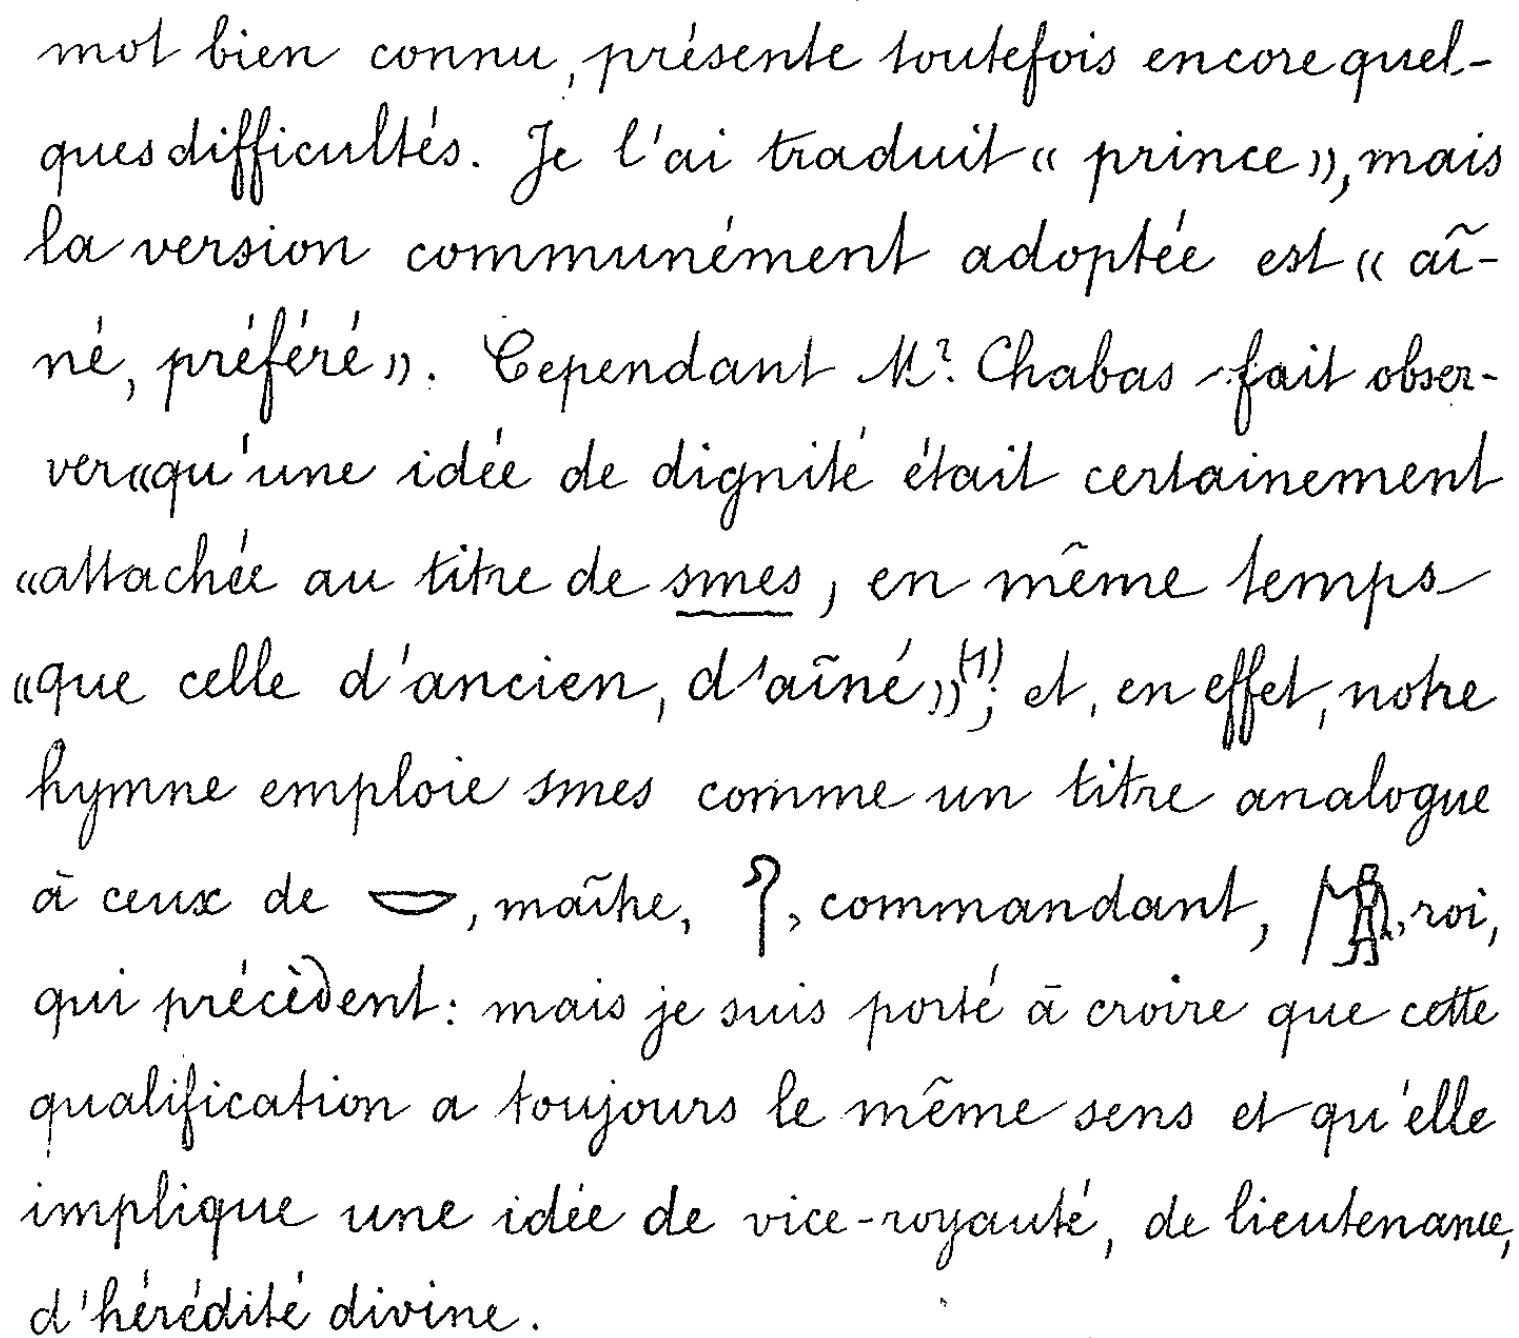 mot bien connu, présente toutefois encore quel-
ques difficultés. Je l'ai traduit « prince », mais
la version communément adoptée est « aî-
né, préféré ». Cependant Mr. Chabas fait obser-
ver « qu'une idée de dignité était certainement
« attachée au titre de smes, en même temps
« que celle d'ancien, d'aîné » (1); et, en effet, notre
hymne emploie smes comme un titre analogue
à ceux de 𓎟, maître, 𓋾, commandant, roi,
qui précèdent : mais je suis porté à croire que cette
qualification a toujours le même sens et qu'elle
implique une idée de vice-royauté, de lieutenance,
d'hérédité divine.